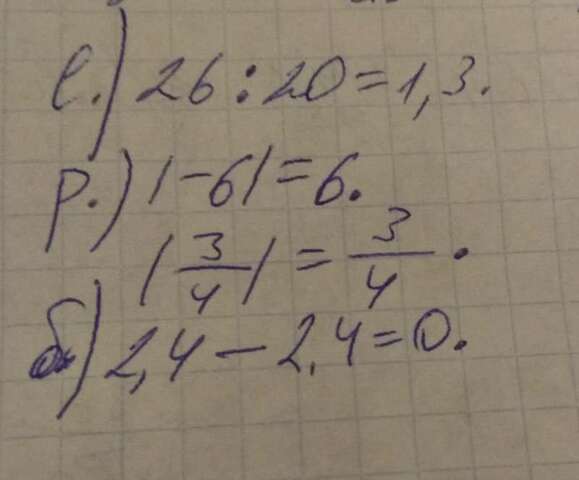 е.) 26 : 20 = 1,3.
р.) |-6| = 6.
|3/4| = 3/4.
б) 2,4 - 2,4 = 0.